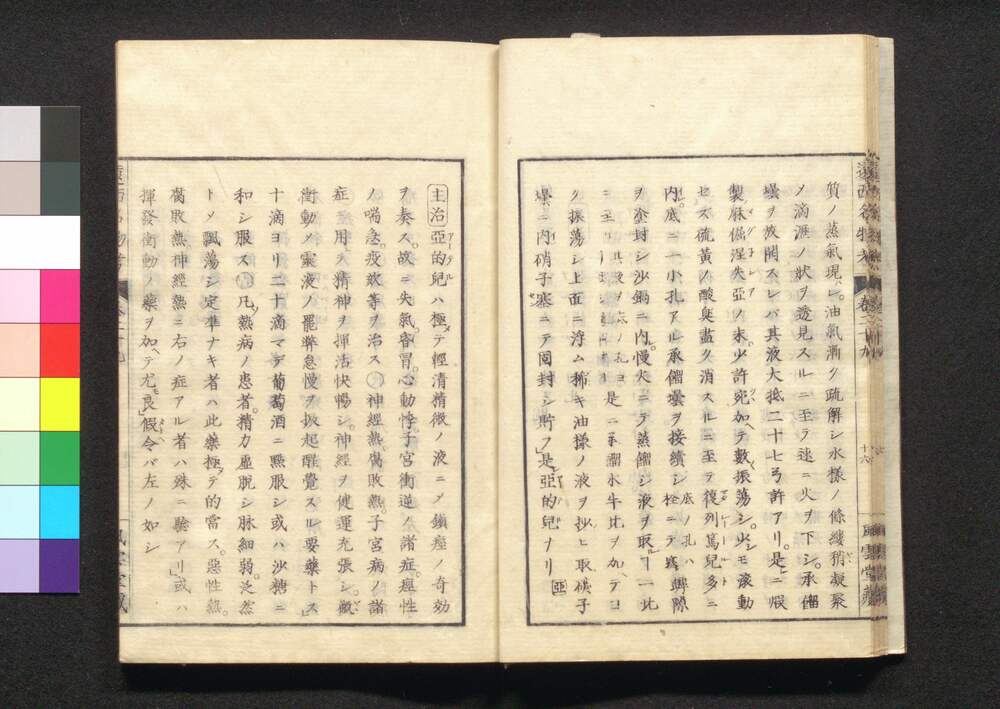 質ノ蒸氣現レ油氣漸ク疏解シ水樣ノ條縷稍凝聚
メ滴滙ノ狀ヲ透見スルニ至ラ速ニ火ヲ下シ承餾
壜ヲ放開スレバ其液大抵二十七弓許アリ是ニ煆
製麻倔涅失亞ノ末少許宛加ヘテ數振蕩シ少シモ滾動
セズ硫黃ノ酸臭盡ク消スルニ至テ復列篤兒多ニ
内底ニ一小孔アル承餾壜ヲ接續シ底ノ孔ハ栓ニテ
ヲ塗封シ沙鍋ニ内慢火ニテ蒸餾シ液ヲ取ルコ一此
ニ至リ是ニ餾水牛比ヲ加ヘテヨ
ク振蕩シ上面ニ浮ム稀キ油樣ノ液ヲ抄ヒ取硝子
壜ニ内硝子塞ニテ固封シ貯フ是亞的兒ナリ 亞
主治 亞的兒ハ極メテ輕清精微ノ液ニメ鎮痙ノ奇効
アーテル
ヲ奏ス故ニ失氣昏冒心動悸子宮衝逆ノ諸症痙性
ノ喘急疫欬等ヲ治ス神經熱腐敗熱子宮病ノ諸
症ニ用テ精神ヲ揮活快暢シ神經ヲ健運充張シ微
衝動メ靈液ノ罷弊怠慢ヲ扱起醒覺スル要藥トス
十滴ヨリ二十滴マデ葡萄酒ニ㸃服シ或ハ沙糖ニ
和シ服ス凡熱病ノ患者精力虛脫シ脉細弱泛然
トメ飄蕩シ定準ナキ者ハ此藥極テ的當ス惡性熱
腐敗熱神經熱ニ右ノ症アル者ハ殊ニ驗アリ或ハ
揮發衝動ノ藥ヲ加ヘテ尤良假令バ左ノ如シ